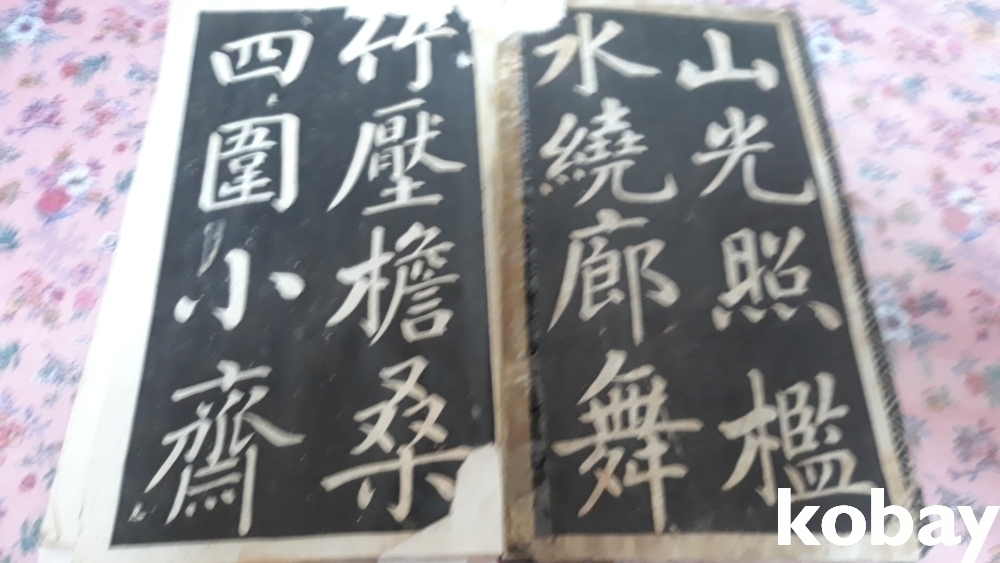 山光照檻
水繞廊舞
竹壓檐桑
四圍小齋
kobay